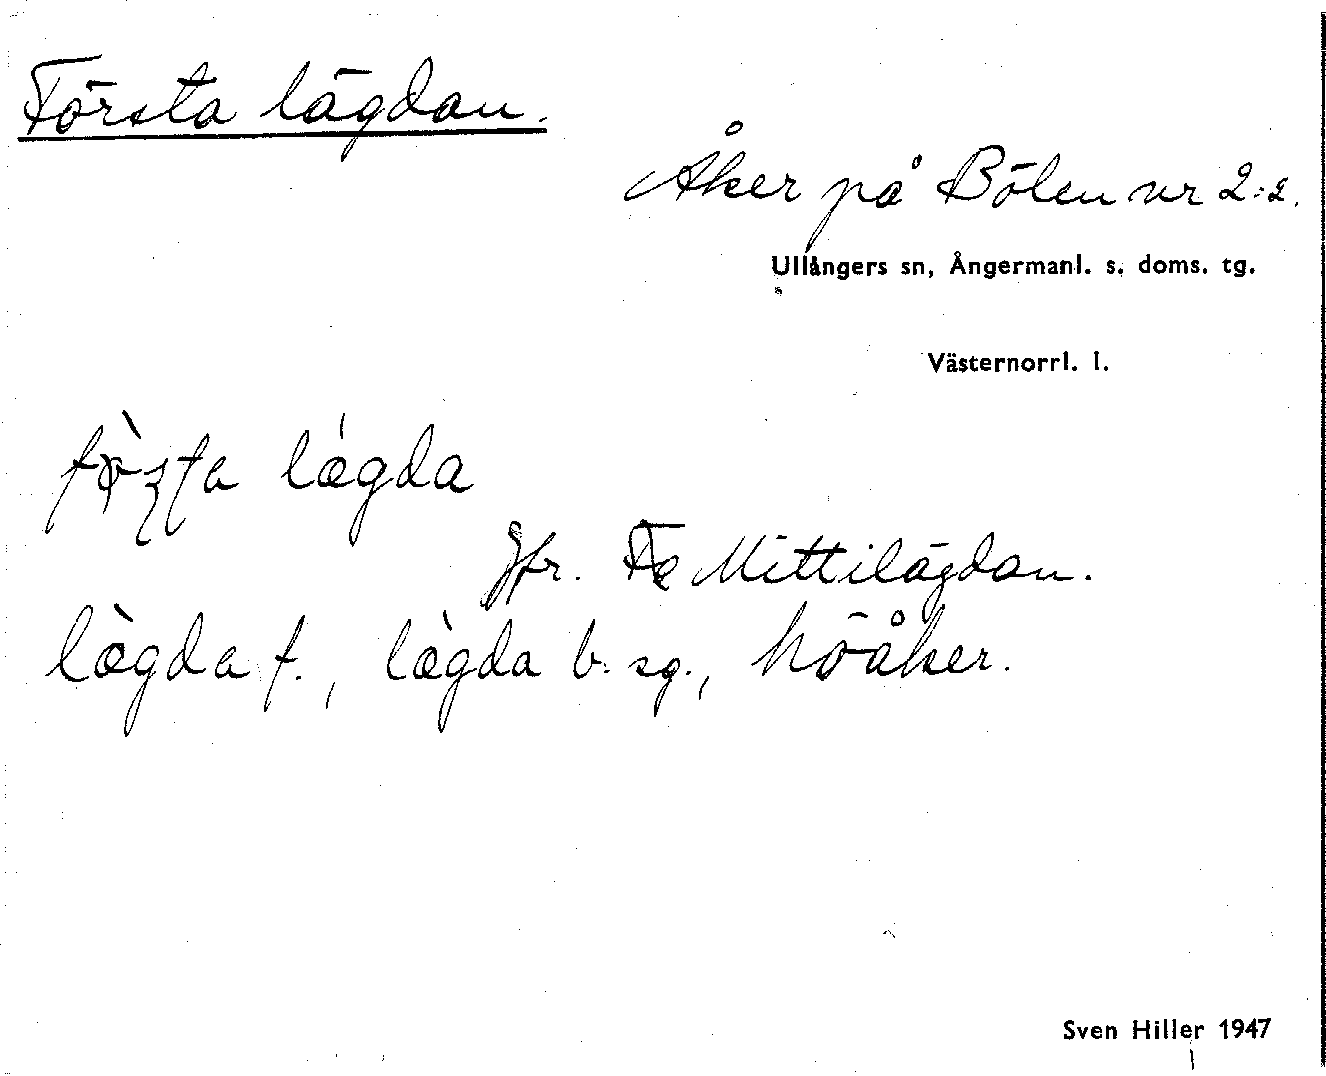 Första lägdan.
Åker på Bölen nr 2:2.
Ullångers sn, Ångermanl. s. doms. tg.
Västernorrl. l.
lǽgda
Jfr. Mittilägdan.
læ̀gda f., læ̀gda b. sg., höåker.
Sven Hiller 1947